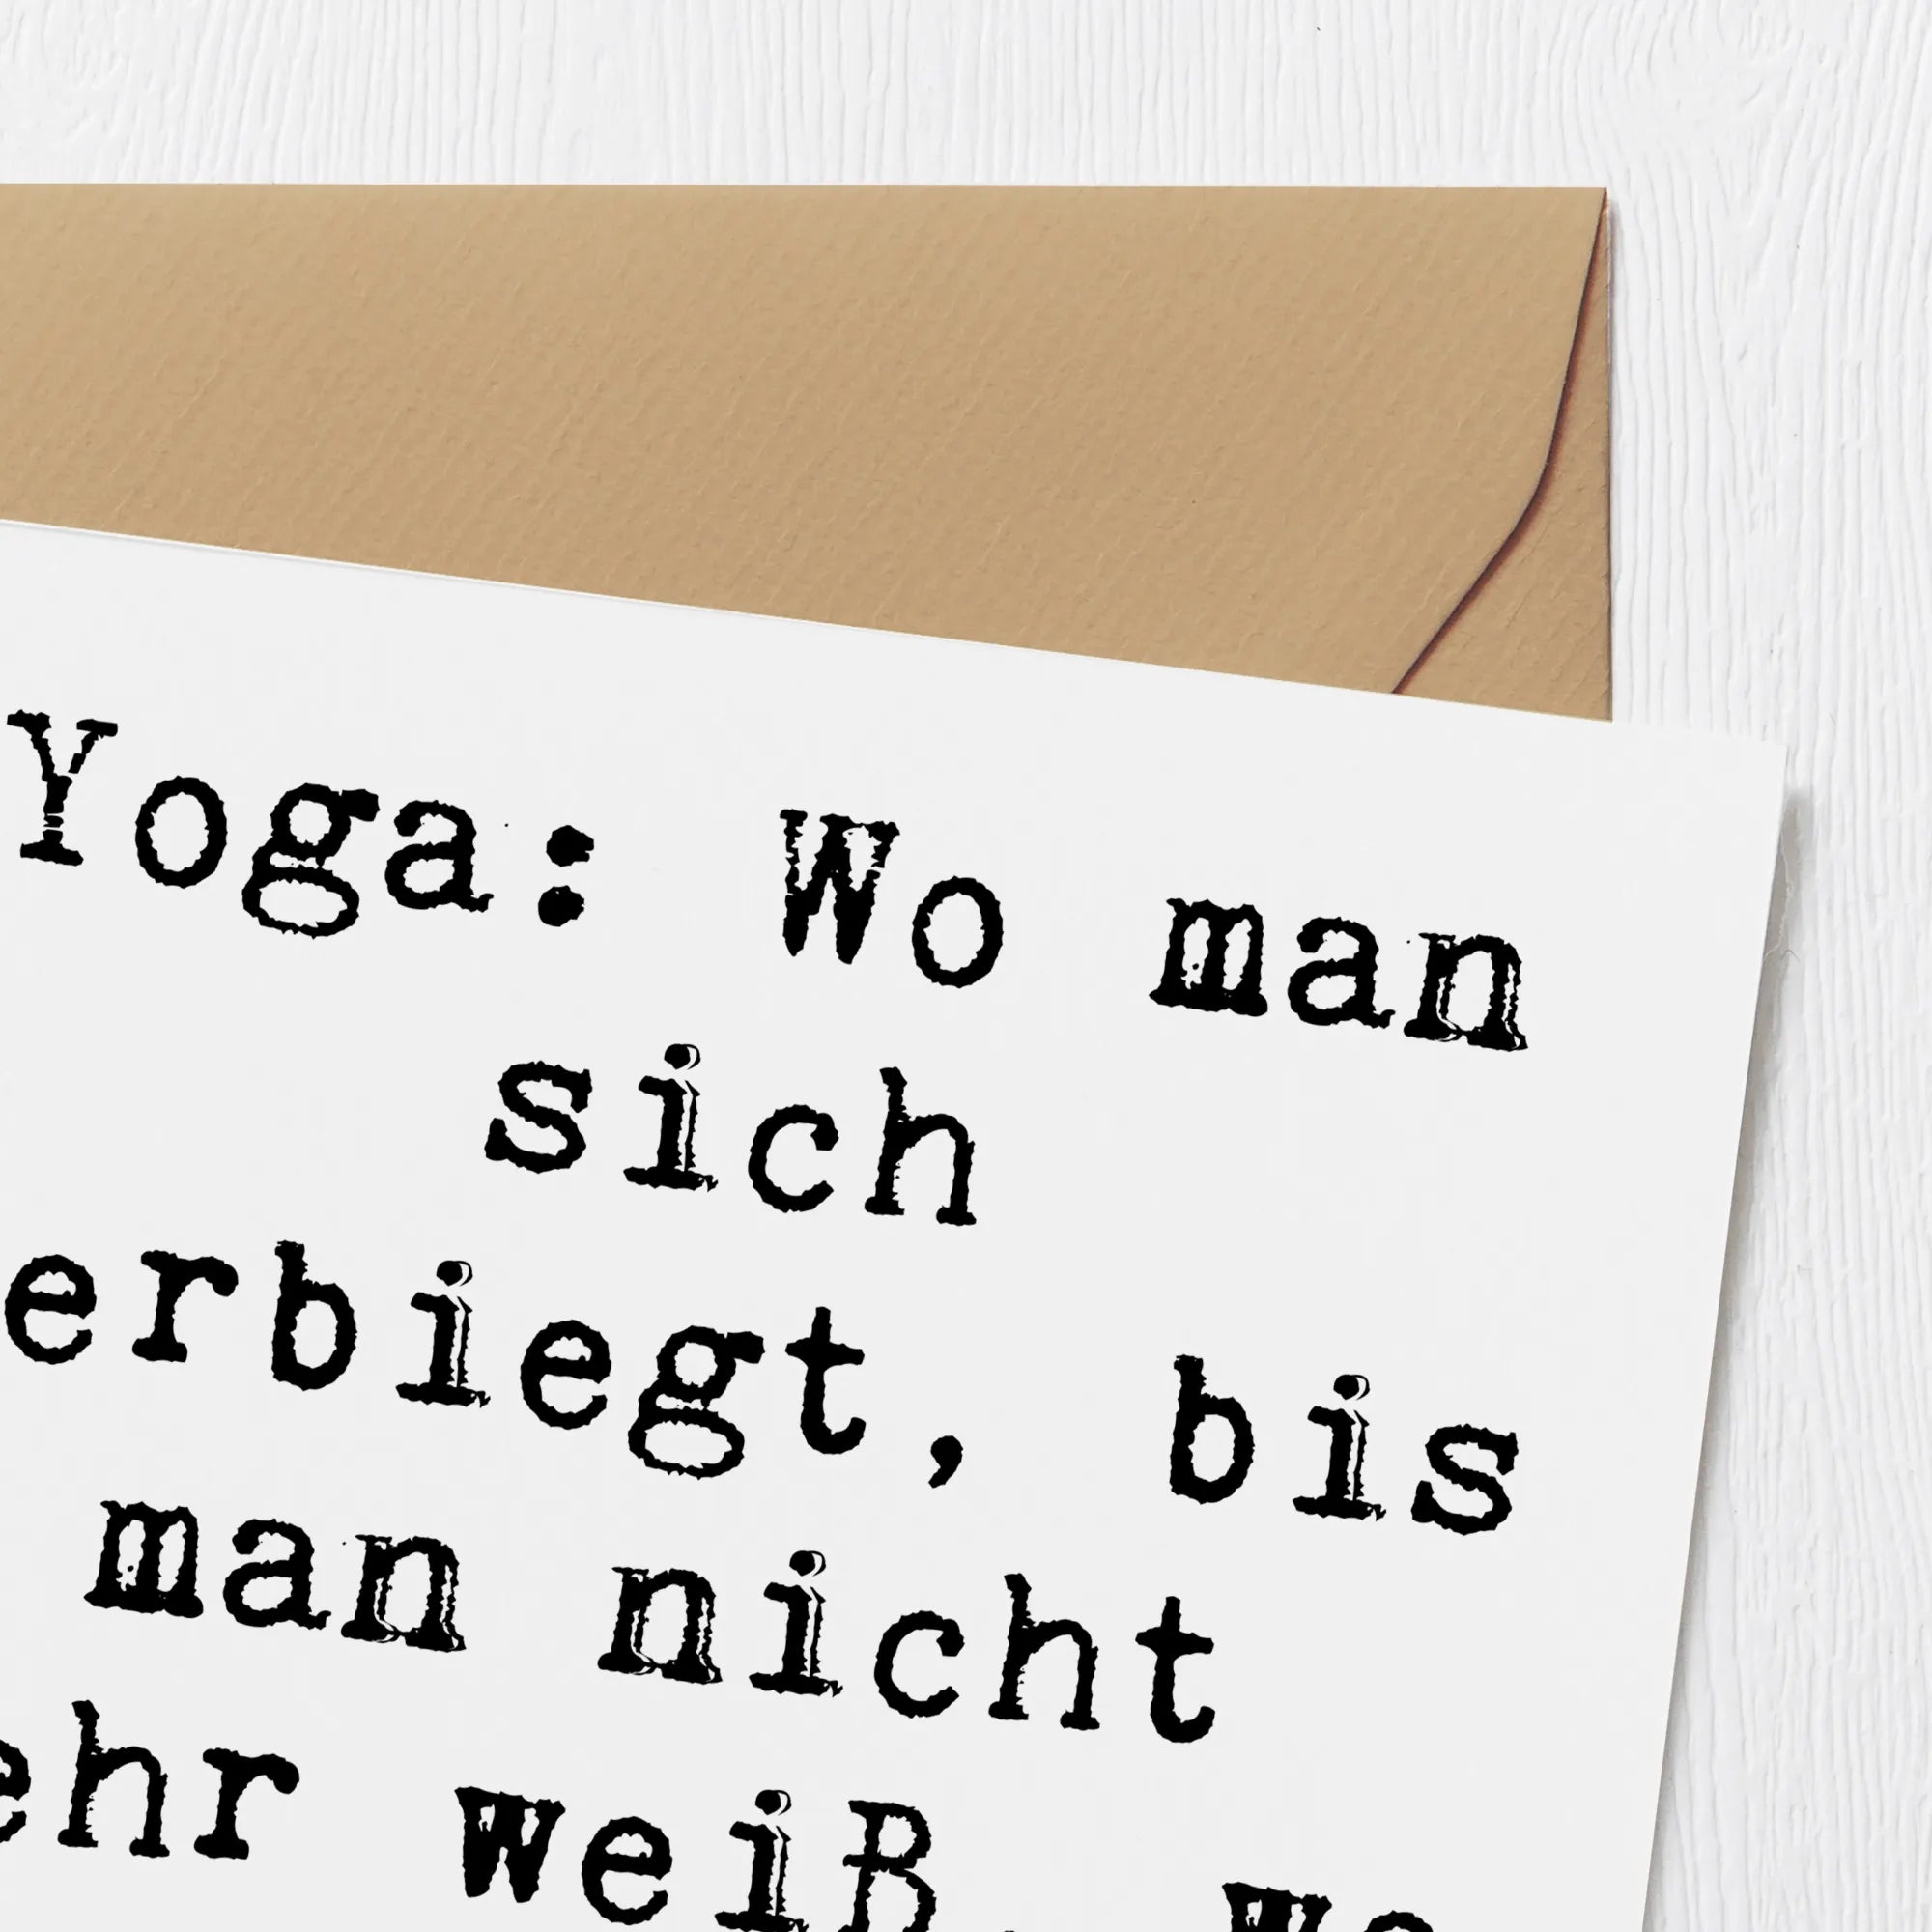 Yoga: Wo man
sich
erbiegt, bis
man nicht
ehr weiß, wo